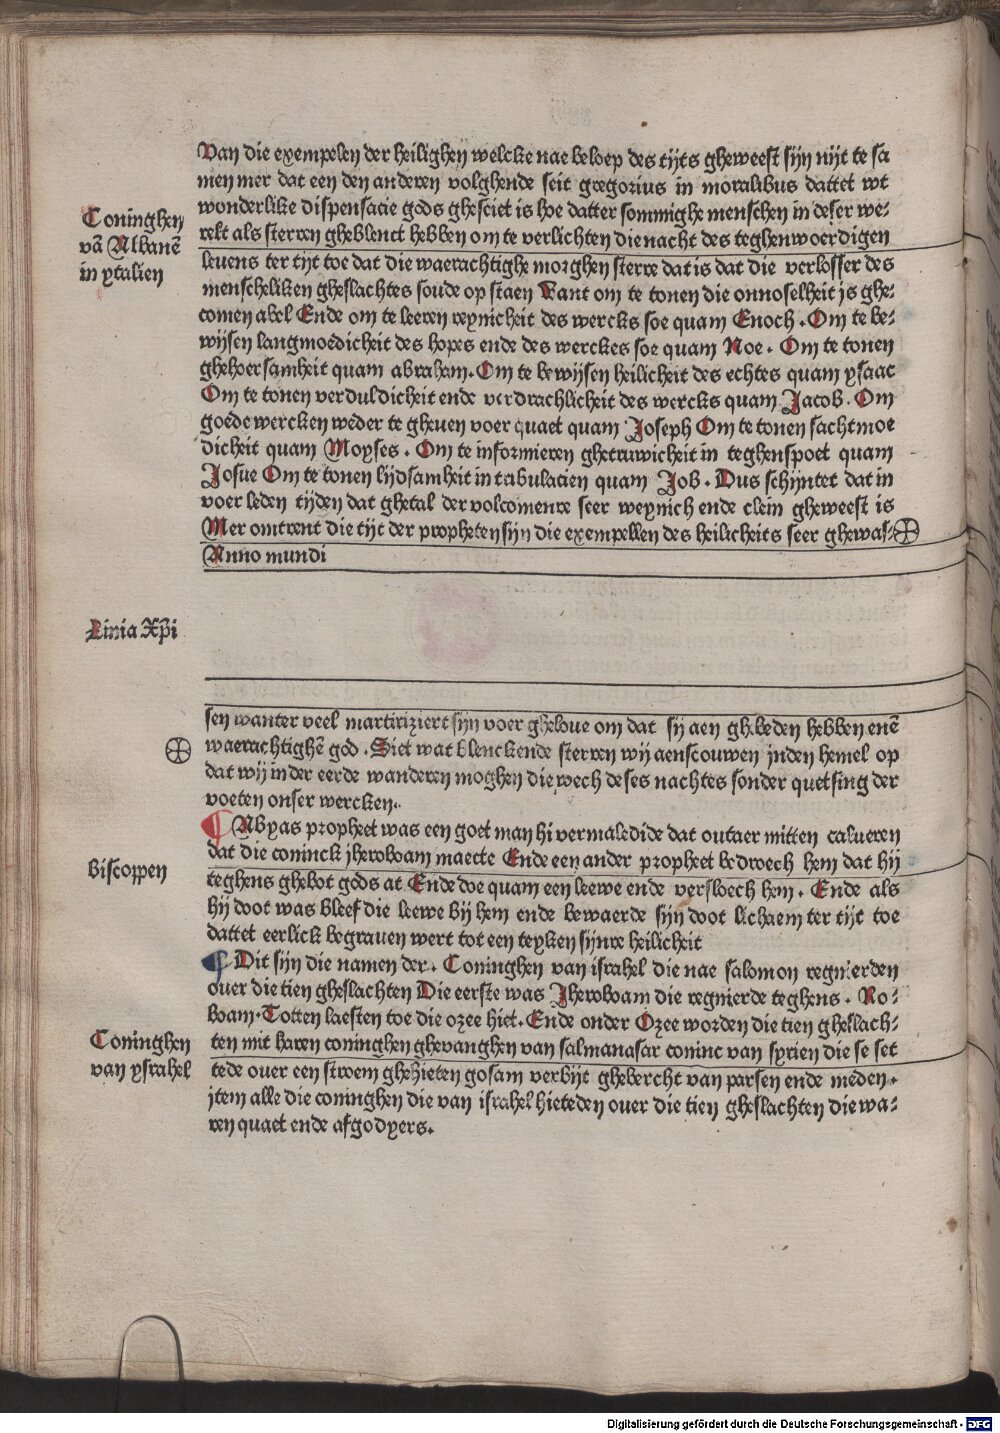 Van die exempelen der heilighen welcke nae beloep des tijts gheweest sijn nijt te sa
men mer dat een den anderen volghende seit gregorius in moralibus dattet wt
Coninghen
vā Albanē
in ytalien
wonderlike dispensacie gods ghesciet is hoe datter sommighe menschen in deser we⸗
relt als sterren gheblenct hebben om te verlichten die nacht des teghenwoerdigen
leuens ter tijt toe dat die waerachtighe morghen sterre dat is dat die verlosser des
menscheliken gheslachtes soude op staen Want om te tonen die onnoselheit js ghe⸗
comen abel Ende om te leeren reynicheit des wercks soe quam Enoch. Om te be⸗
wijsen langmoedicheit des hopes ende des werckes soe quam Noe. Om te tonen
ghehoersamheit quam abraham. Om te bewijsen heilicheit des echtes quam ysaac
Om te tonen verduldicheit ende verdrachlicheit des wercks quam Jacob. Om
goede wercken weder te gheuen voer quaet quam Joseph Om te tonen sachtmoe
dicheit quam Moyses. Om te informieren ghetruwicheit in teghenspoet quam
Josue Om te tonen lijdsamheit in tribulacien quam Job. Dus schijntet dat in
voer leden tijden dat ghetal der volcomenre seer weynich ende clein gheweest is
Mer omtrent die tijt der propheten sijn die exempellen des heilicheits seer ghewas⸗
Anno mundi
Linia Xp̄i
sen wanter veel martiriziert sijn voer gheloue om dat sij aen ghebeden hebben enē
waerachtighē god. Siet wat blenckende sterren wij aenscouwen jnden hemel op
dat wij in der eerde wanderen moghen die wech deses nachtes sonder quetsing der
voeten onser wercken.
Abyas propheet was een goet man hi vermaledide dat outaer mitten calueren
dat die coninck jheroboam maecte Ende een ander propheet bedroech hem dat hij
Biscoppen
teghens ghebot gods at Ende doe quam een leewe ende versloech hem. Ende als
hij doot was bleef die leewe bij hem ende bewaerde sijn doot lichaem ter tijt toe
dattet eerlick begrauen wert tot een teyken sijnre heilicheit
Dit sijn die namen der. Coninghen van israhel die nae salomon regnierden
ouer die tien gheslachten Die eerste was Jheroboam die regnierde teghens. Ro⸗
boam. Totten laesten toe die ozee hiet. Ende onder Ozee worden die tien gheslach⸗
Coninghen
van ysrahel
ten mit haren coninghen ghevanghen van salmanasar coninc van syrien die se set
tede ouer een stroem ghehieten gosam verbijt ghebercht van parsen ende meden.
jtem alle die coninghen die van israhel hieteden ouer die tien gheslachten die wa⸗
ren quaet ende afgodyers.
Digitalisierung gefördert durch die Deutsche Forschungsgemeinschaft - DFG